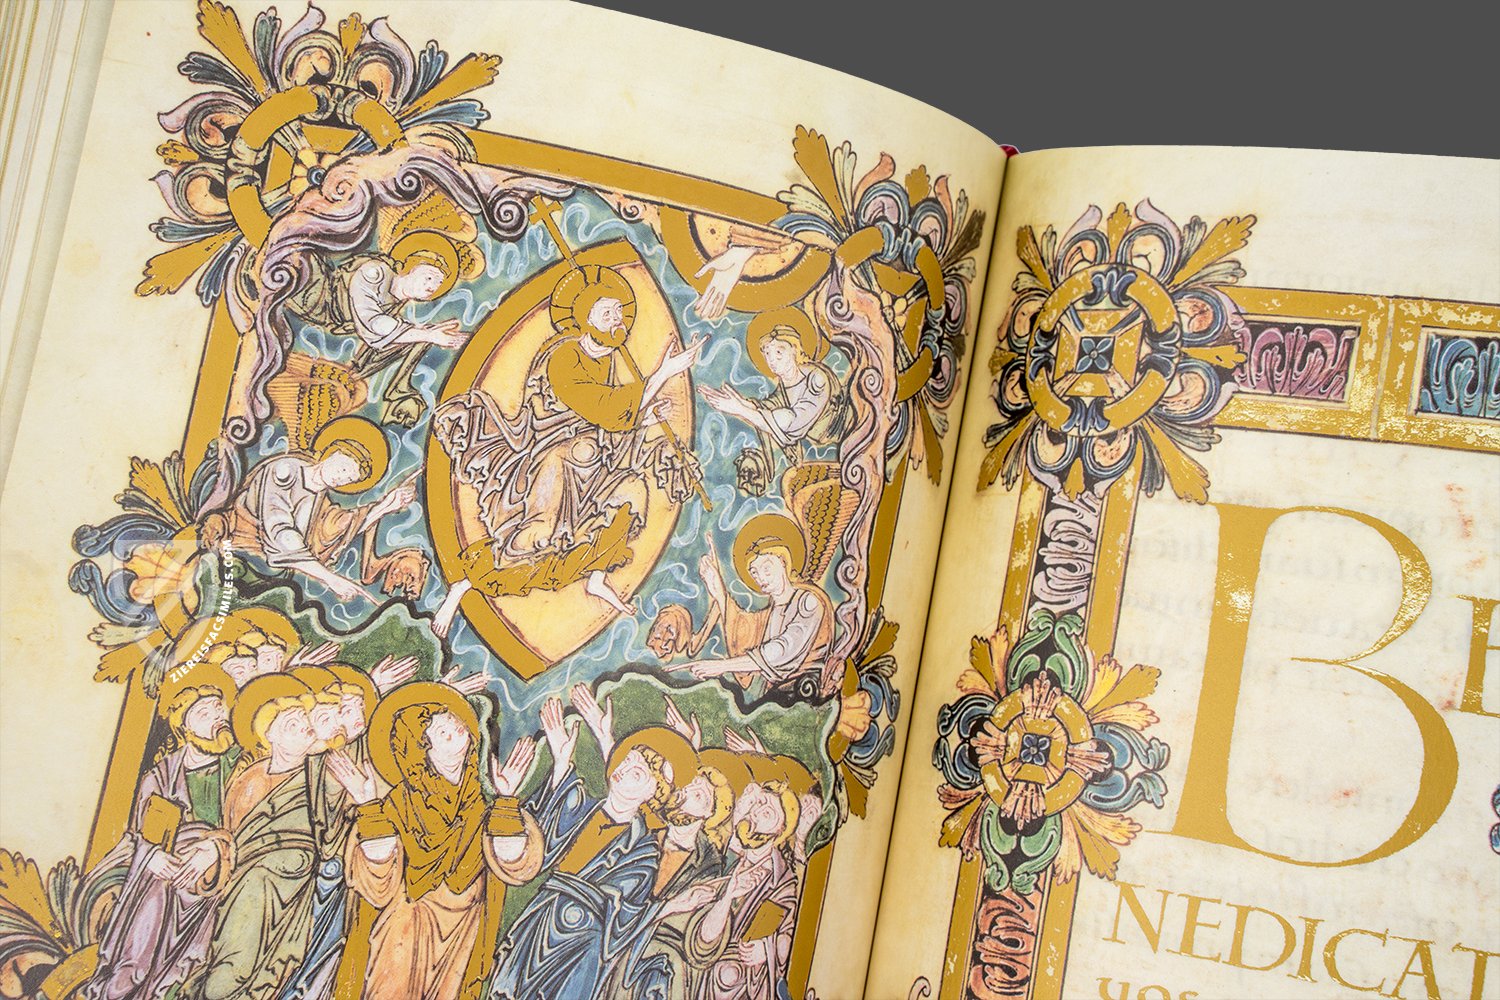 ZIEREISFACSIMILES.COM
BE
NEDICAT
uos